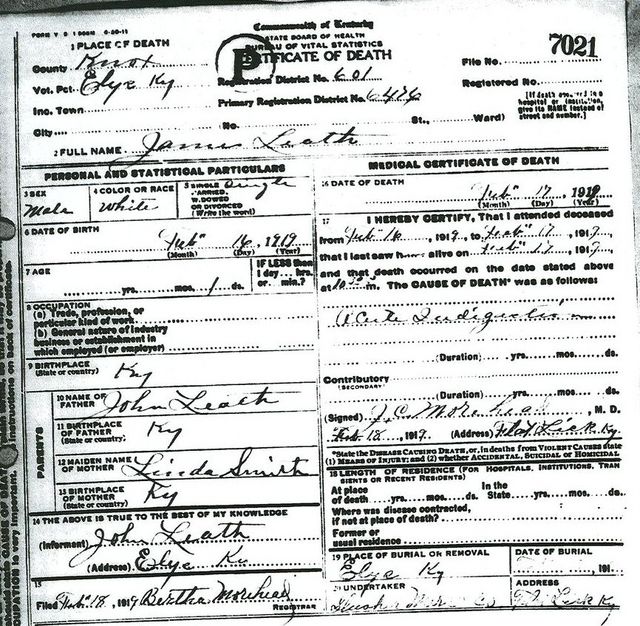 Commonwealth of Kentucky
STATE BOARD OF HEALTH
BUREAU OF VITAL STATISTICS
CERTIFICATE OF DEATH
7021
1 PLACE OF DEATH
County Knox
Vot. Pct. Elys Ky
Inc. Town
City
Registration District No. 601
Primary Registration District No. 6476
File No.
Registered No.
[If death occurred in a hospital or institution, give its NAME instead of street and number.]
(No. St., Ward)
2 FULL NAME James Leath
PERSONAL AND STATISTICAL PARTICULARS
3 SEX Male
4 COLOR OR RACE White
5 SINGLE, MARRIED, WIDOWED OR DIVORCED (Write the word) Single
6 DATE OF BIRTH Feb 16, 1919
(Month) (Day) (Year)
7 AGE
yrs. mos. 1 ds.
IF LESS than 1 day... hrs. or min.?
8 OCCUPATION
(a) Trade, profession, or particular kind of work
(b) General nature of industry business or establishment in which employed (or employer)
9 BIRTHPLACE (State or country) Ky
PARENTS
10 NAME OF FATHER John Leath
11 BIRTHPLACE OF FATHER (State or country) Ky
12 MAIDEN NAME OF MOTHER Linda Smith
13 BIRTHPLACE OF MOTHER (State or country) Ky
14 THE ABOVE IS TRUE TO THE BEST OF MY KNOWLEDGE
(Informant) John Leath
(Address) Elys Ky
15
Filed Feb 18, 1919 Bertha Morehead
REGISTRAR
MEDICAL CERTIFICATE OF DEATH
16 DATE OF DEATH
Feb 17, 1919
(Month) (Day) (Year)
17 I HEREBY CERTIFY, That I attended deceased
from Feb 16, 1919, to Feb 17, 1919,
that I last saw h alive on Feb 17, 1919,
and that death occurred on the date stated above
at 10 m. The CAUSE OF DEATH* was as follows:
Acute Indigestion
(Duration) yrs. mos. ds.
Contributory
(SECONDARY)
(Duration) yrs. mos. ds.
(Signed) J. C. Morehead, M. D.
Feb. 18, 1919 (Address) Flat Lick Ky.
*State the DISEASE CAUSING DEATH, or, in deaths from VIOLENT CAUSES state (1) MEANS OF INJURY; and (2) whether ACCIDENTAL, SUICIDAL or HOMICIDAL
18 LENGTH OF RESIDENCE (FOR HOSPITALS, INSTITUTIONS, TRANSIENTS OR RECENT RESIDENTS)
At place of death yrs. mos. ds. In the State yrs. mos. ds.
Where was disease contracted, if not at place of death?
Former or usual residence
19 PLACE OF BURIAL OR REMOVAL Elys Ky
DATE OF BURIAL
, 191
20 UNDERTAKER
ADDRESS Flat Lick Ky